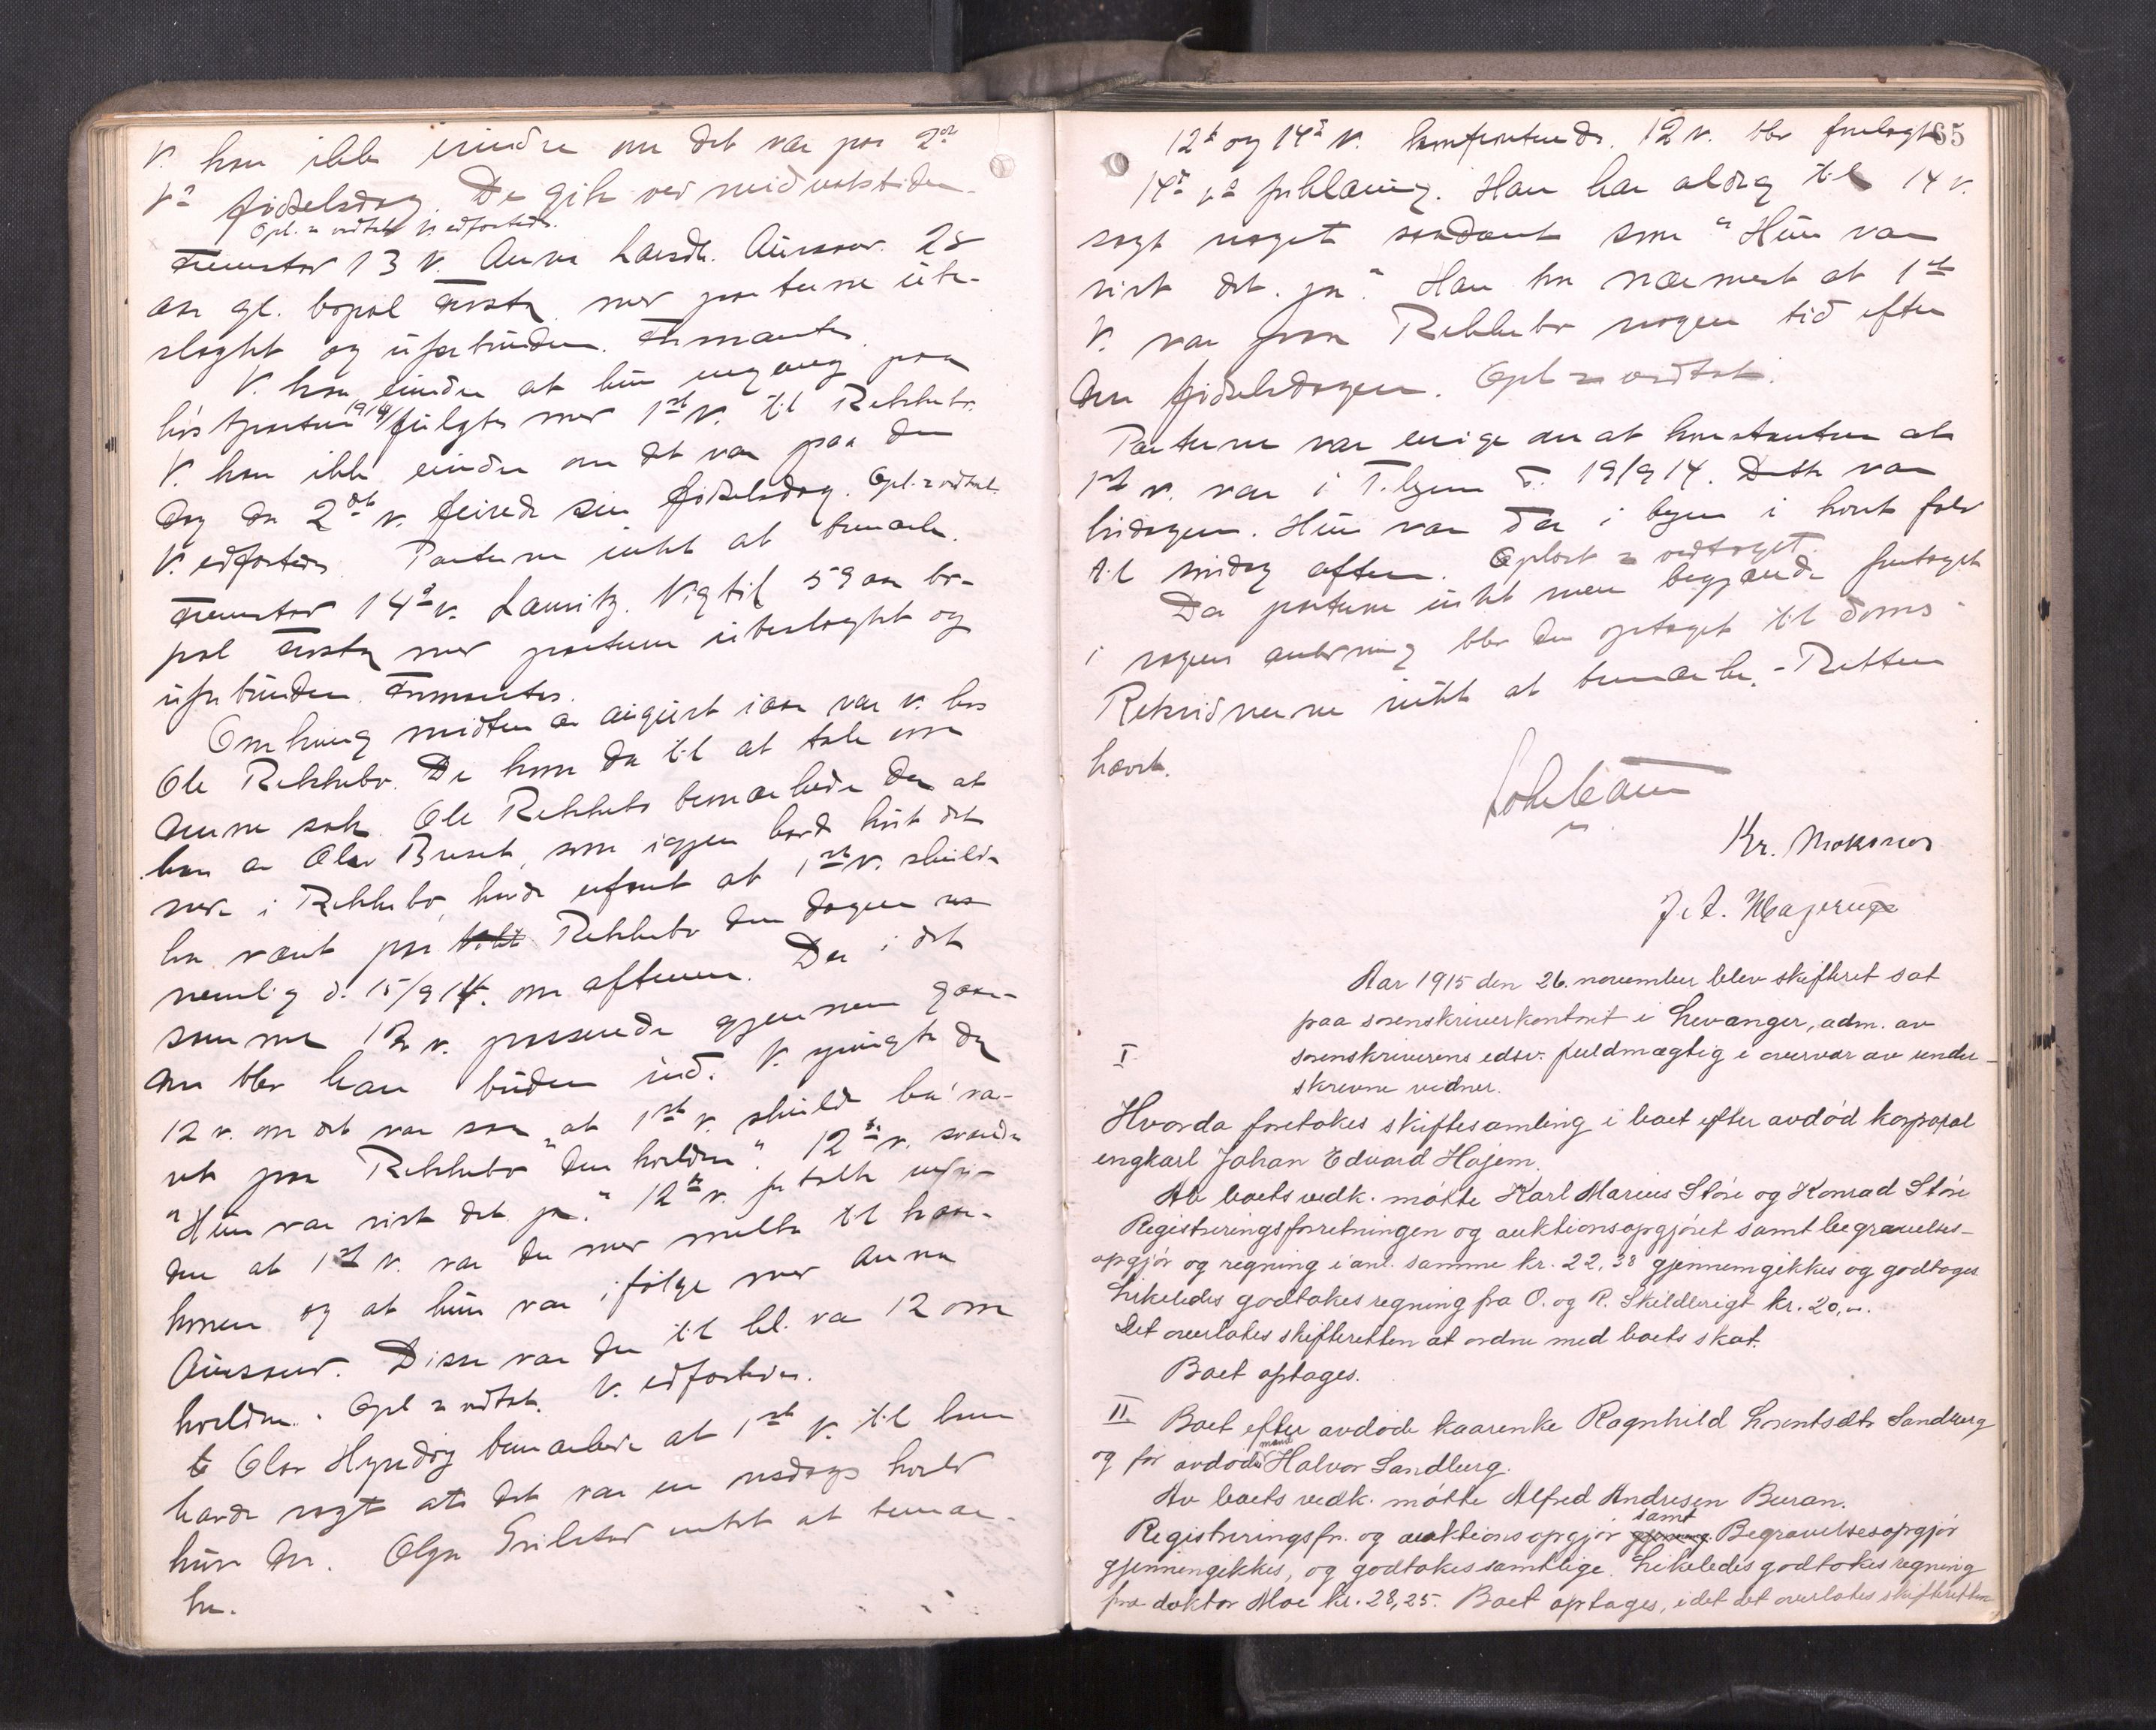 V. kan ikke erindre om det var paa 2det
v.s fødselsdag. De gik ved midnatstiden.
Opl. & vedtat. V. edfæstedes.
Fremstod 13 v. Anna Larsdtr. Aursand. 28
aar gl. bopæl Frosta med parterne ube-
slægtet og uforbunden. Formantes.
V. kan erindre at hun engang paa
høstparten 1914 fulgtes med 1ste v. til Rekkebo.
V. kan ikke erindre om det var paa den
dag da 2det v. feirede sin fødselsdag. Opl. & vedtat.
V. edfæstedes. Parterne intet at bemærke.
Fremstod 14de v. Lauritz Vigtil 59 aar bo-
pæl Frosta med parterne ubeslægtet og
uforbunden. Formantes.
Omkring midten av august iaar var v. hos
Ole Rekkebo. De kom da til at tale om
denne sak. Ole Rekkebo bemærkede da at
han av Olav Buset, som igjen hadde hørt det
nede i Rekkebo, hadde erfaret at 1ste v. skulde
ha været paa Rekkebo den dagen
nemlig d. 15/9 14. om aftenen. Da i det
samme 12 v. passerede gjennem gaar-
den blev han buden ind. V. spurgte da
12 v. om det var saa "at 1ste v. skulde ha væ-
ret paa Rekkebo "den kvelden". 12te v. svarede
"Hun var vist det ja." 12te v. fortalte
den at 1ste v. var der med melk til
konen og at hun var i følge med Anna
Aursand. Disse var der til kl. va 12 om
kvelden. Opl. & vedtat. V. edfæstedes.
Olav Hyndøy bemærkede at 1ste v. til ham
havde sagt at det var en
hun der. Olga intet at bemær-
ke.
85
12te og 14de v. konfronteredes. 12 v. blev forelagt
14de v.s forklaring. Han har aldrig til 14 v.
sagt noget saadant som "Hun var
vist det ja". Han har nærmest at 1ste
v. var paa Rekkebo nogen tid efter
den fødselsdagen. Opl. & vedtat.
Parterne var enige om at konstantere at
1ste v. var i T.hjem d. 19/9 14. Dette var
lørdagen. Hun var da i byen i hvert fald
til søndag aften. Oplæst & vedtaget.
Da parterne intet mere begjærede foretaget
i sagens anledning blev den optaget til doms.
Retsvidnerne intet at bemærke. - Retten
hævet.
Kr. Moksnes
J. A. Magerup
Aar 1915 den 26. november blev skifteret sat
paa sorenskriverkontoret i Levanger, adm. av
sorenskriverens edsv. fuldmægtig i overvær av under-
skrevne vidner.
I
Hvorda foretokes skiftesamling i boet efter avdød korporal
engkarl Johan Edvard Hojem.
Av boets vedk. møtte Karl Marius Støre og Konrad Støre
Registreringsforretningen og auktionsopgjøret samt begravelses-
opgjør og regning i anl. samme kr. 22,38 gjennemgikkes og godtoges
Likeledes godtokes regning fra O. og P. Skildbrigt kr. 20,00.
Det overlates skifteretten at ordne med boets skat.
Boet optages.
II Boet efter avdøde kaarenke Ragnhild Lorentsdtr Sandberg
og før avdøde mand Halvor Sandberg.
Av boets vedk. møtte Alfred Andresen Buran.
Registreringsfr. og auktionsopgjør samt Begravelsesopgjør
gjennemgikkes, og godtokes samtlige. Likeledes godtokes regning
fra doktor Moe kr. 28,25. Boet optages, idet det overlates skifteretten